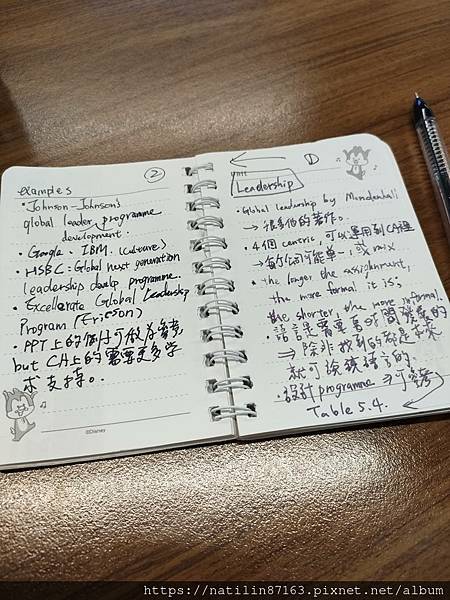 ①
unit
Leadership
• Global leadership by Mendenhall
→ 很多他的著作。
• 4個 centric, 可以運用到CH裡
→ 每個公司可能單一, 或 mix
• the longer the assignment,
the more formal it is;
the shorter, the more informal.
語課需要長時間發展的
⇒ 除非找到的就是本來
就可談該語言的.
• 設計 programme ⇒ 可參考
Table 5.4.
②
examples
• Johnson-Johnson's
global leader programme
development.
• Google、IBM. (culture)
• HSBC: Global next generation
leadership develp programme.
• Excellerate Global Leadership
Program (Ericson)
• PPT上的例子可做為參考,
but CH上的需要更多學
术支持。
©Disney
https://natilin87163.pixnet.net/album